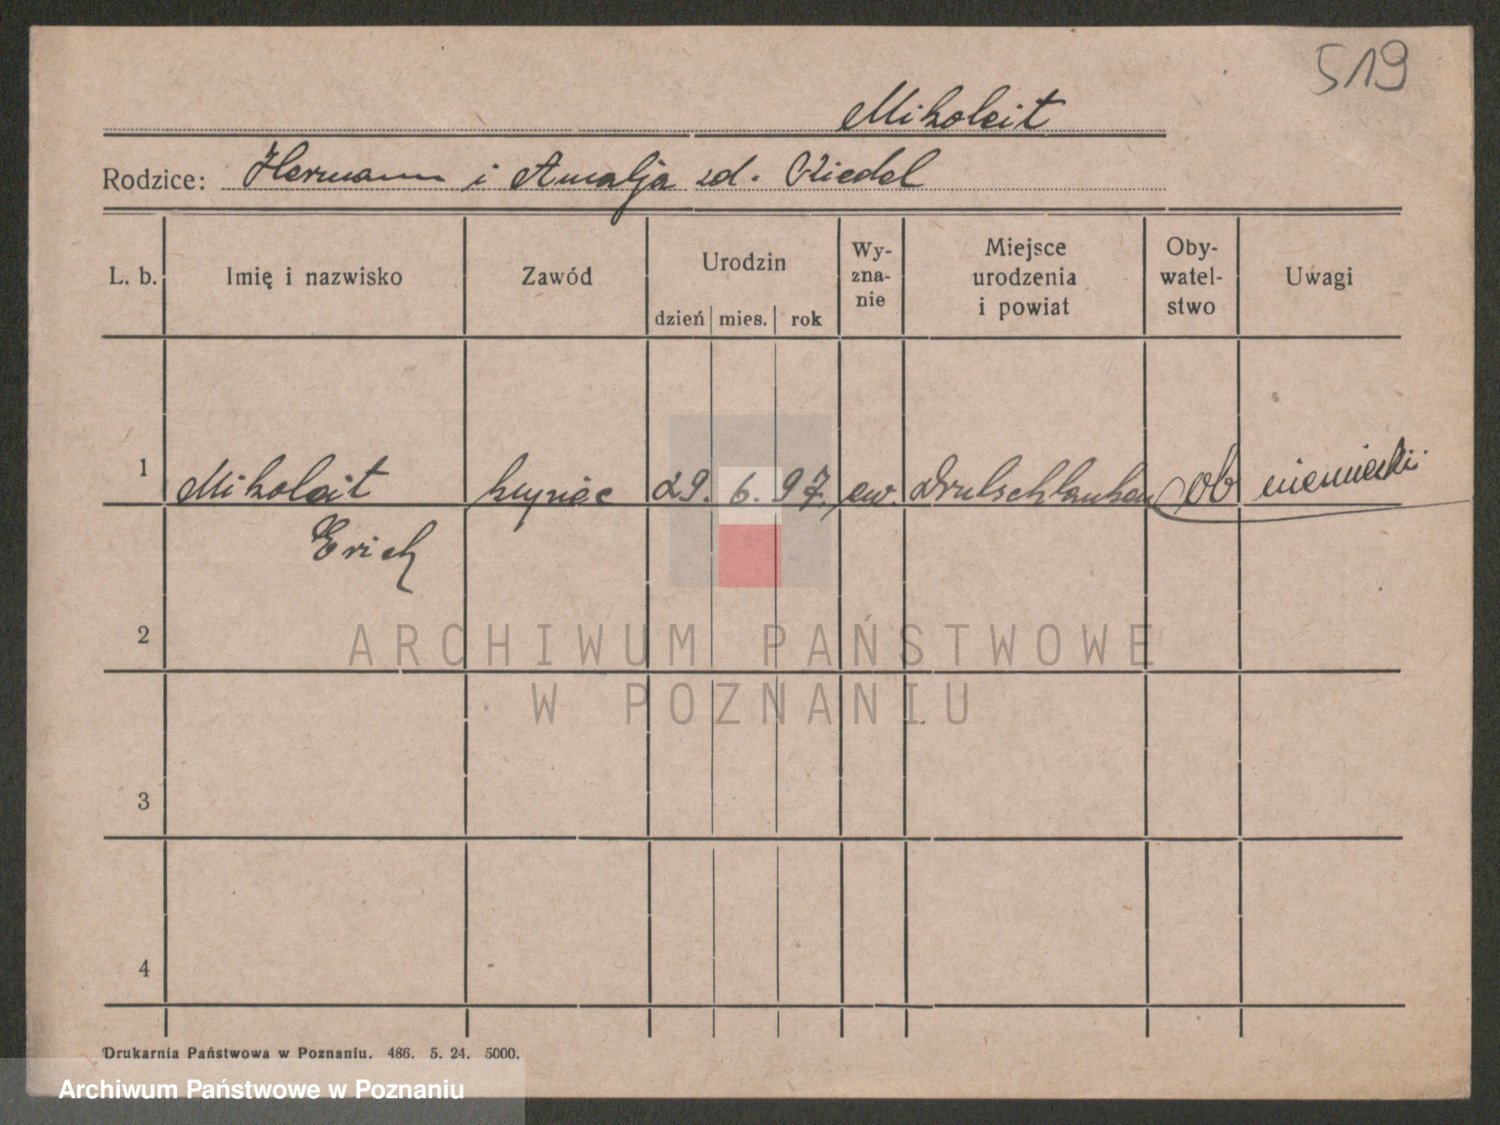 519
Mikoleit
Rodzice: Hermann i Amalja zd. Riedel
L. b. Imię i nazwisko Zawód Urodzin dzień mies. rok Wy-zna-nie Miejsce urodzenia i powiat Oby-watel-stwo Uwagi
1 Mikoleit kupiec 29. 6. 97. ew. ob niemiecki
Erich
2
3
4
ARCHIWUM PAŃSTWOWE
W POZNANIU
Drukarnia Państwowa w Poznaniu. 486. 5. 24. 5000.
Archiwum Państwowe w Poznaniu